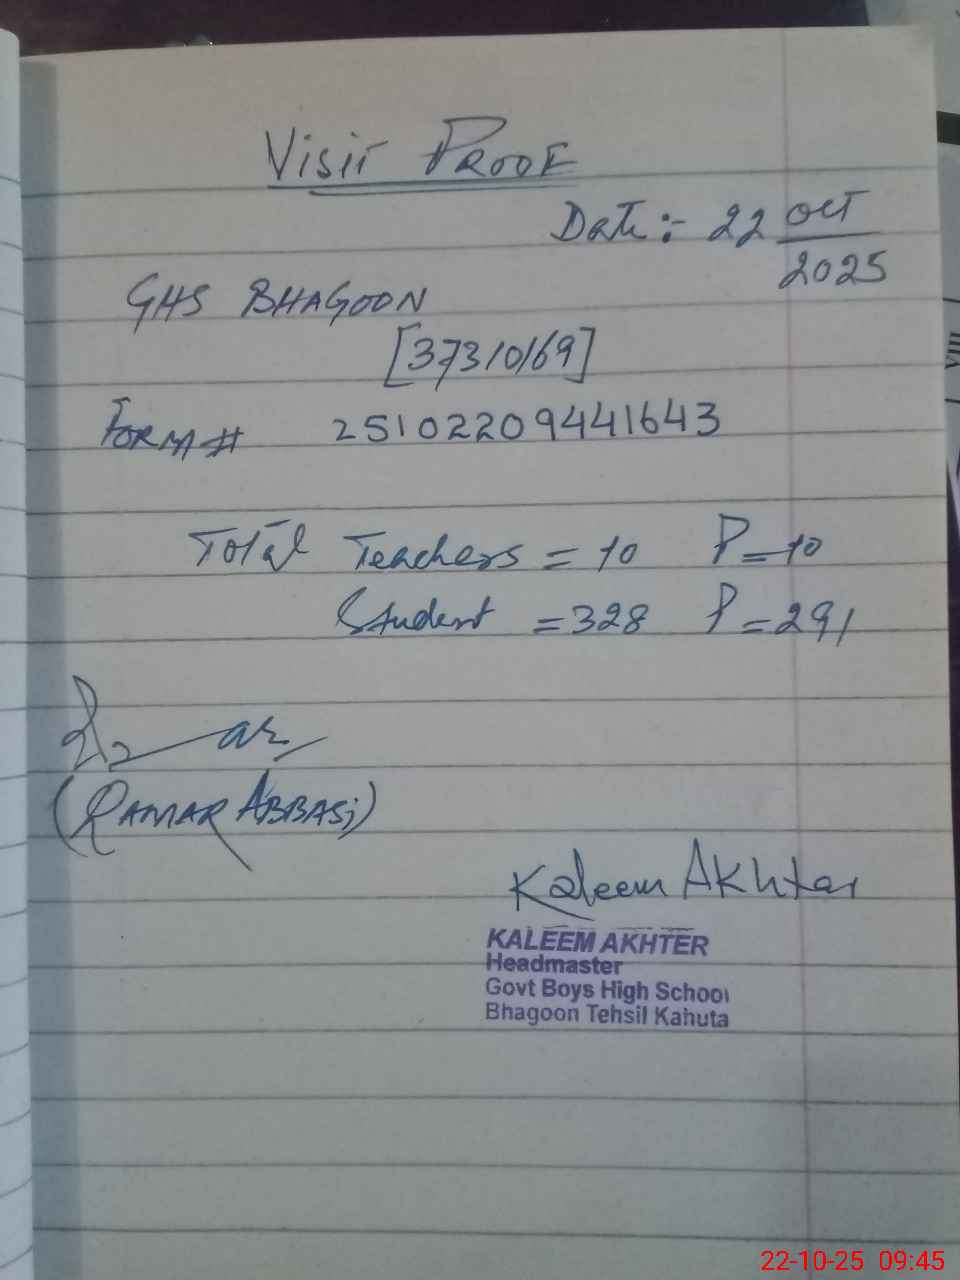 Visit Proof
Date:- 22 Oct
2025
GHS BHAGOON
[37310169]
Form # 25102209441643
Total Teachers = 10 P = 10
Student = 328 P = 291
(QAMAR ABBASi)
Kaleem Akhtar
KALEEM AKHTER
Headmaster
Govt Boys High School
Bhagoon Tehsil Kahuta
VIII
22-10-25 09:45